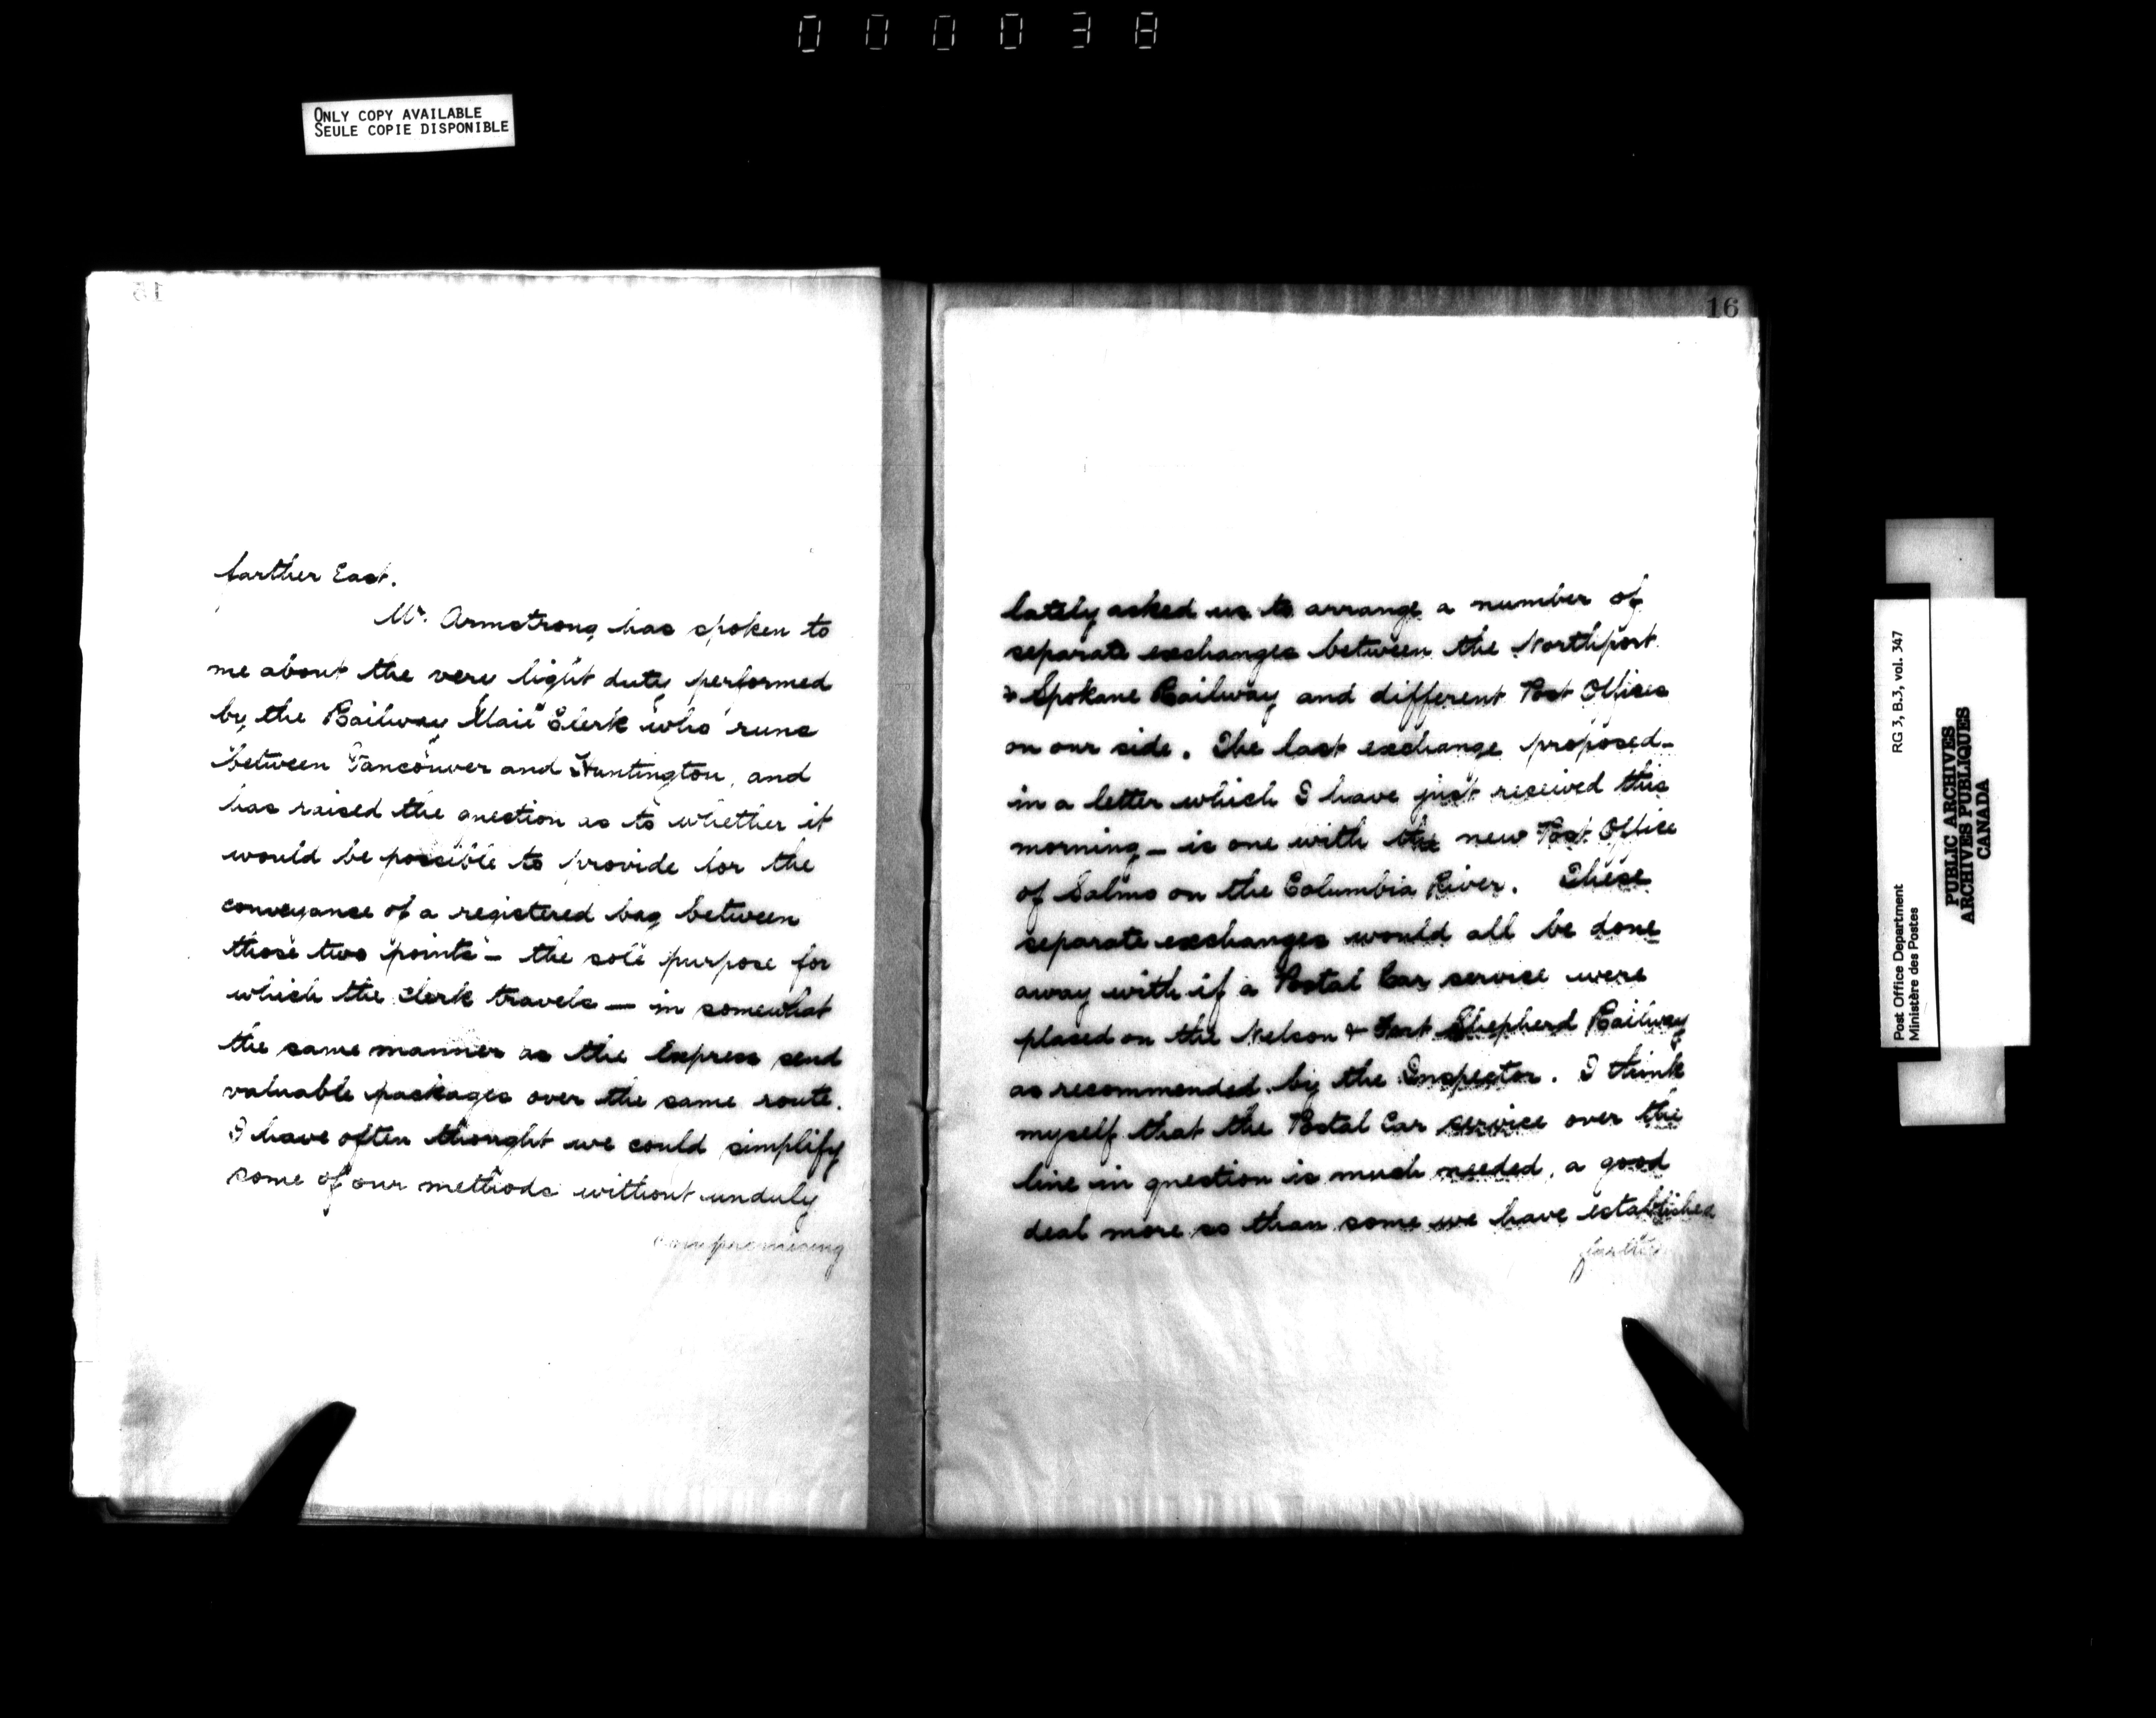 000038
ONLY COPY AVAILABLE
SEULE COPIE DISPONIBLE
15
farther East.
Mr. Armstrong has spoken to
me about the very light duty performed
by the Railway Mail Clerk who runs
between Vancouver and Huntington, and
has raised the question as to whether it
would be possible to provide for the
conveyance of a registered bag between
those two points – the sole purpose for
which the clerk travels – in somewhat
the same manner as the Express send
valuable packages over the same route.
I have often thought we could simplify
some of our methods without unduly
compromising
16
lately asked us to arrange a number of
separate exchanges between the Northport
& Spokane Railway and different Post Offices
on our side. The last exchange proposed –
in a letter which I have just received this
morning – is one with the new Post Office
of Salmo on the Columbia River. These
separate exchanges would all be done
away with if a Postal Car service were
placed on the Nelson & Fort Shepherd Railway
as recommended by the Inspector. I think
myself that the Postal Car service over the
line in question is much needed, a good
deal more so than some we have established
farther
Post Office Department
Ministère des Postes
RG 3, B.3, vol. 347
PUBLIC ARCHIVES
ARCHIVES PUBLIQUES
CANADA